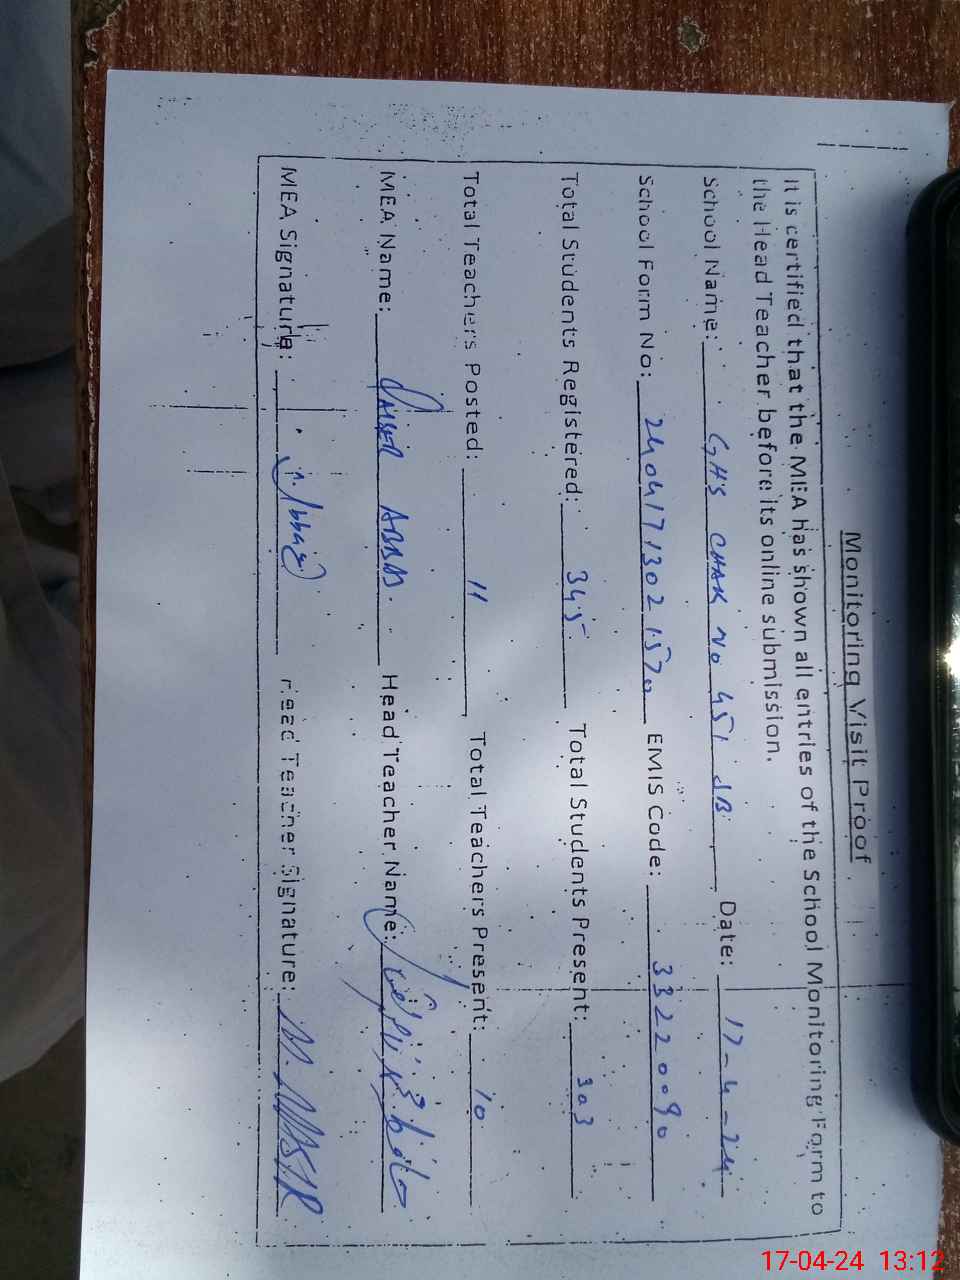 Monitoring Visit Proof
It is certified that the MEA has shown all entries of the School Monitoring Form to
the Head Teacher before its online submission.
School Name: GHS CHAK No 451 JB Date: 17-4-24
School Form No: 24041713021570 EMIS Code: 33220090
Total Students Registered: 345 Total Students Present: 303
Total Teachers Posted: 11 Total Teachers Present: 10
MEA Name: Head Teacher Name:
MEA Signature: Head Teacher Signature: M. NASIR
17-04-24 13:12